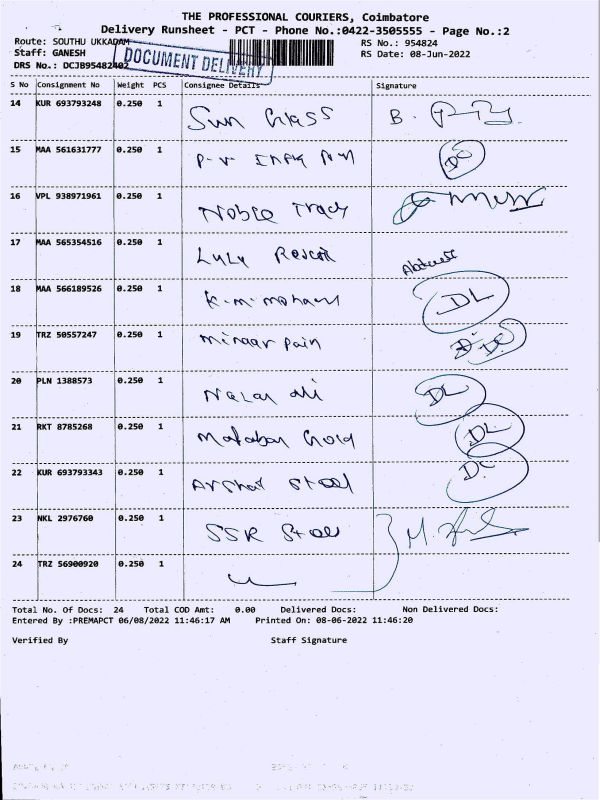 THE PROFESSIONAL COURIERS, Coimbatore
Delivery Runsheet - PCT - Phone No.:0422-3505555 - Page No.:2
Route: SOUTHU UKKADAM
RS No.: 954824
Staff: GANESH
RS Date: 08-Jun-2022
DRS No.: DCJB95482402
DOCUMENT DELIVERY
S No Consignment No Weight PCS Consignee Details Signature
14 KUR 693793248 0.250 1 Sun Glass B.
15 MAA 561631777 0.250 1 P.V.
16 VPL 938971961 0.250 1 Noble
17 MAA 565354516 0.250 1 Lulu
18 MAA 566189526 0.250 1 K.M. mohan DL
19 TRZ 50557247 0.250 1 minaar pain
20 PLN 1388573 0.250 1 DL
21 RKT 8785268 0.250 1 Malabar Gold DL
22 KUR 693793343 0.250 1 Arshat Steel
23 NKL 2976760 0.250 1 SSK Steel M.
24 TRZ 56900920 0.250 1
Total No. Of Docs: 24 Total COD Amt: 0.00 Delivered Docs: Non Delivered Docs:
Entered By :PREMAPCT 06/08/2022 11:46:17 AM Printed On: 08-06-2022 11:46:20
Verified By Staff Signature